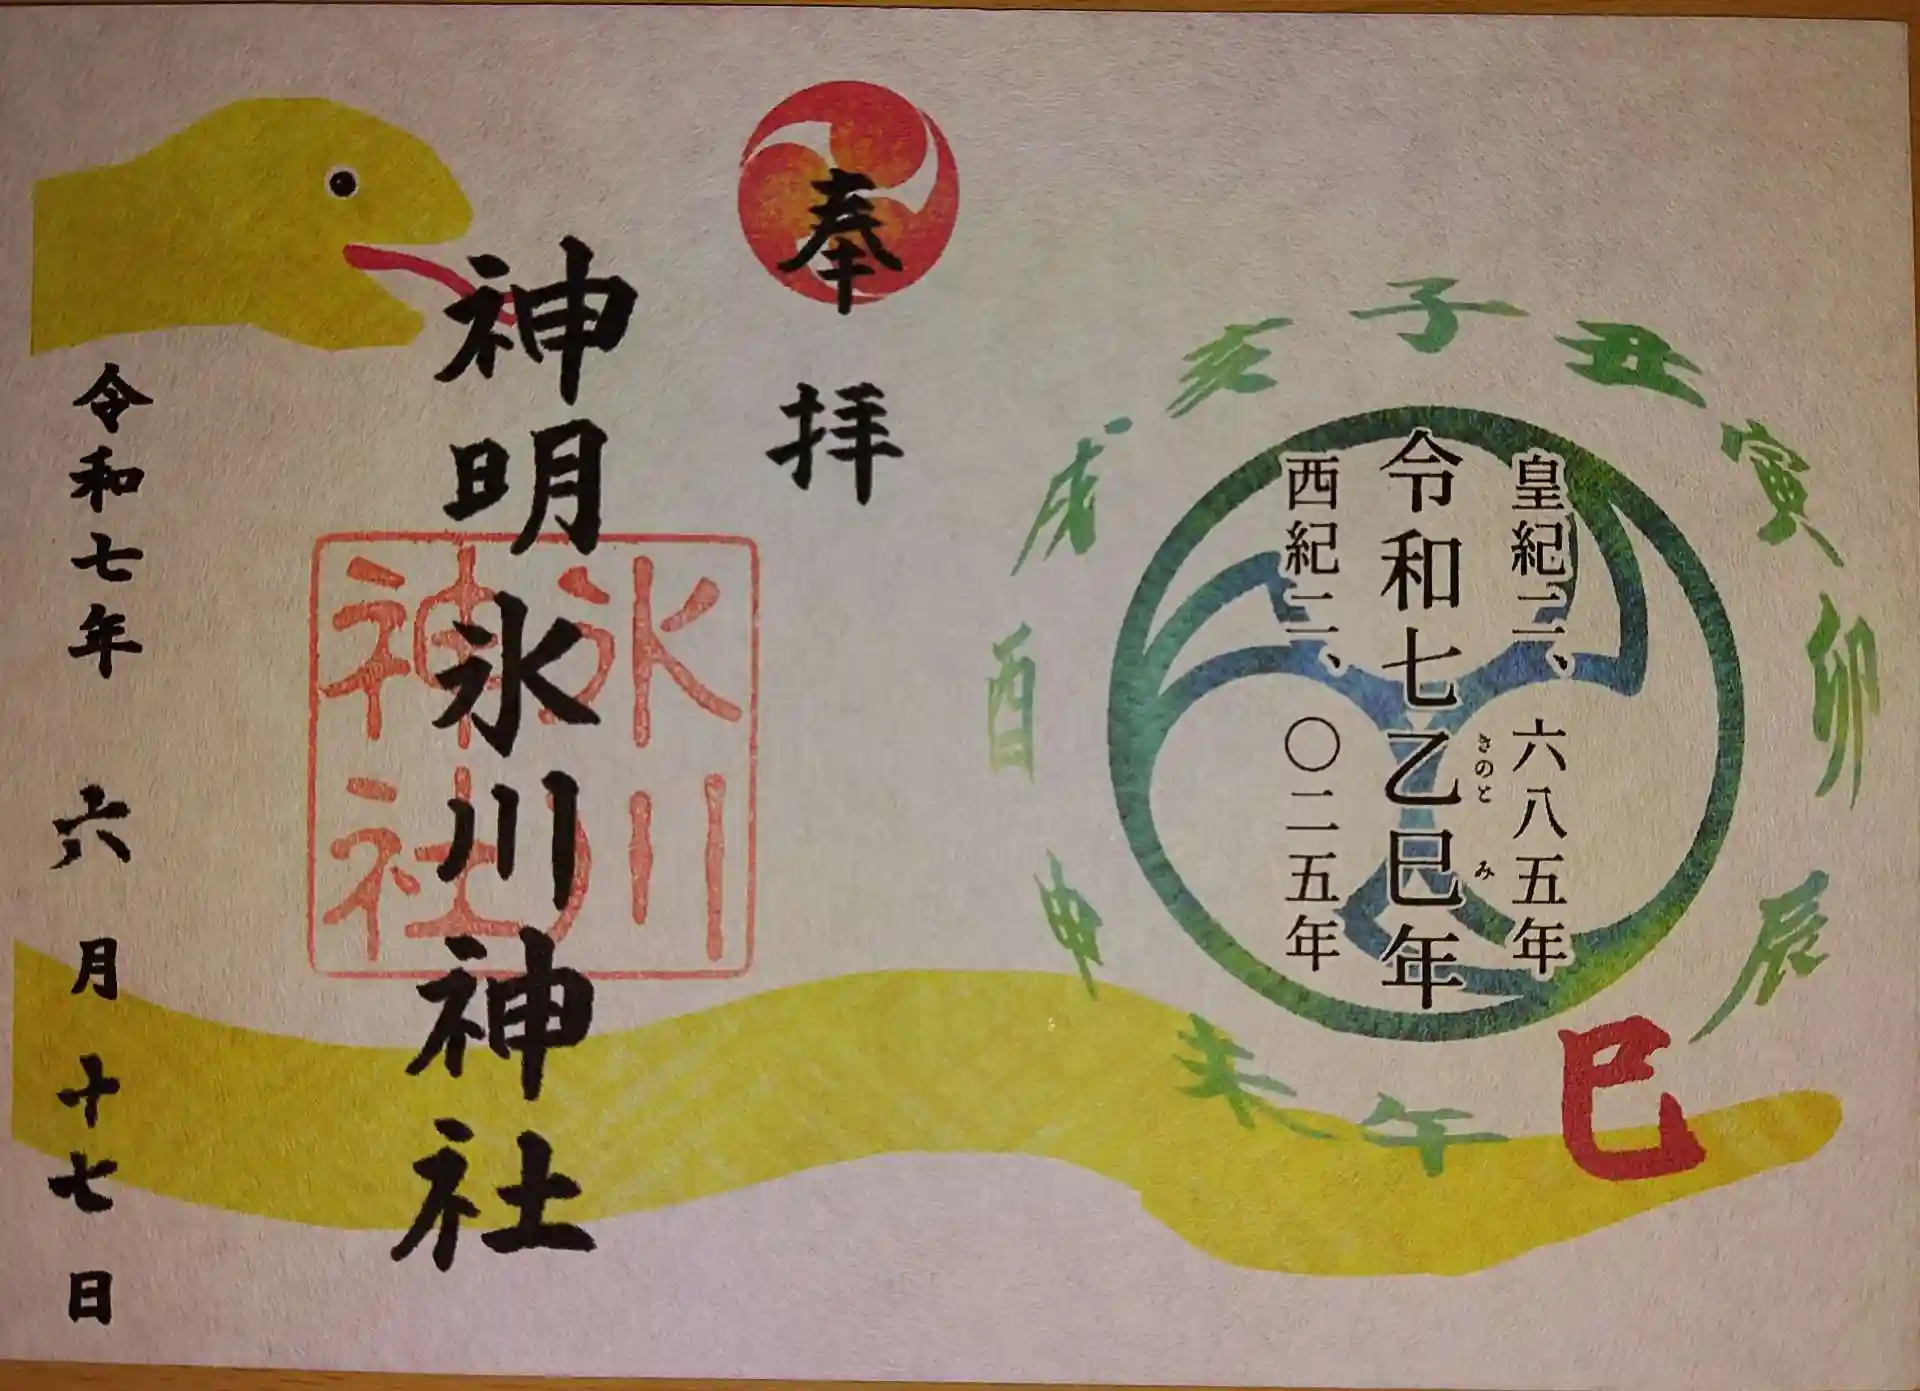 子
丑
寅
卯
辰
巳
午
未
申
酉
戌
亥
皇紀二、六八五年
令和七乙巳年
きのと み
西紀二、〇二五年
奉拝
神明氷川神社
氷川
神社
令和七年 六月十七日